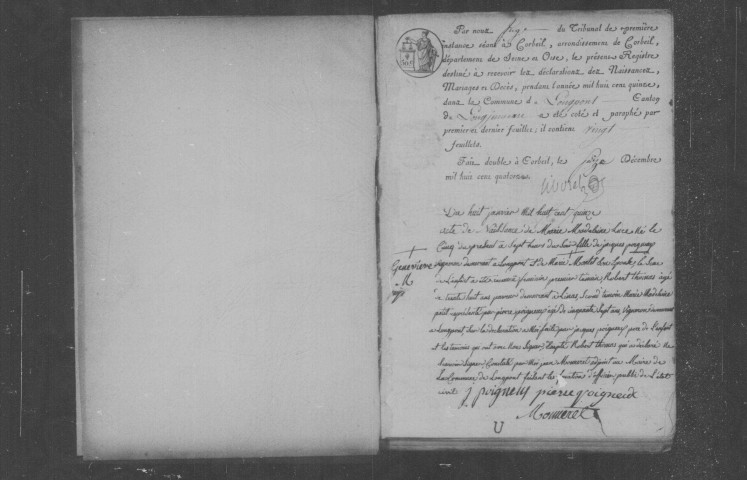 Par nous Juge du Tribunal de première
instance séant à Corbeil, arrondissement de Corbeil,
département de Seine et Oise, le présent Registre
destiné à recevoir les déclarations des Naissances,
Mariages et Décès, pendant l'année mil huit cent quinze,
dans la Commune de Longpont Canton
de Longjumeau a été coté et paraphé par
premier et dernier feuillet; il contient vingt
feuillets.
Fait double à Corbeil, le seize Décembre
mil huit cent quatorze.
Du huit janvier Mil huit cent quinze
acte de Naissance de Marie Madeleine née le
Cinq du présent à Sept heures du Soir fille de jacques poigneux
Genevieve
M
vigneron demeurant a Longpont et de Marie
L'enfant a été reconnu féminin premier témoin, Robert thomas agé
a trente huit ans demeurant a second temoin Marie Madeleine
petit représenté par pierre poigneux agé de cinquante sept ans vigneron demeurant
a Longpont, sur la declaration a Moi faite par jacques poigneux pere de l'enfant
et les temoins qui ont avec Nous Signer, Excepté Robert thomas qui a déclaré Ne
Signer, Constaté par Moi jean Monneret adjoint au Maire de
La Commune de Longpont faisant les fonction d'officier public de L'etat
civil
j poigneux pierre poigneux
Monneret
U